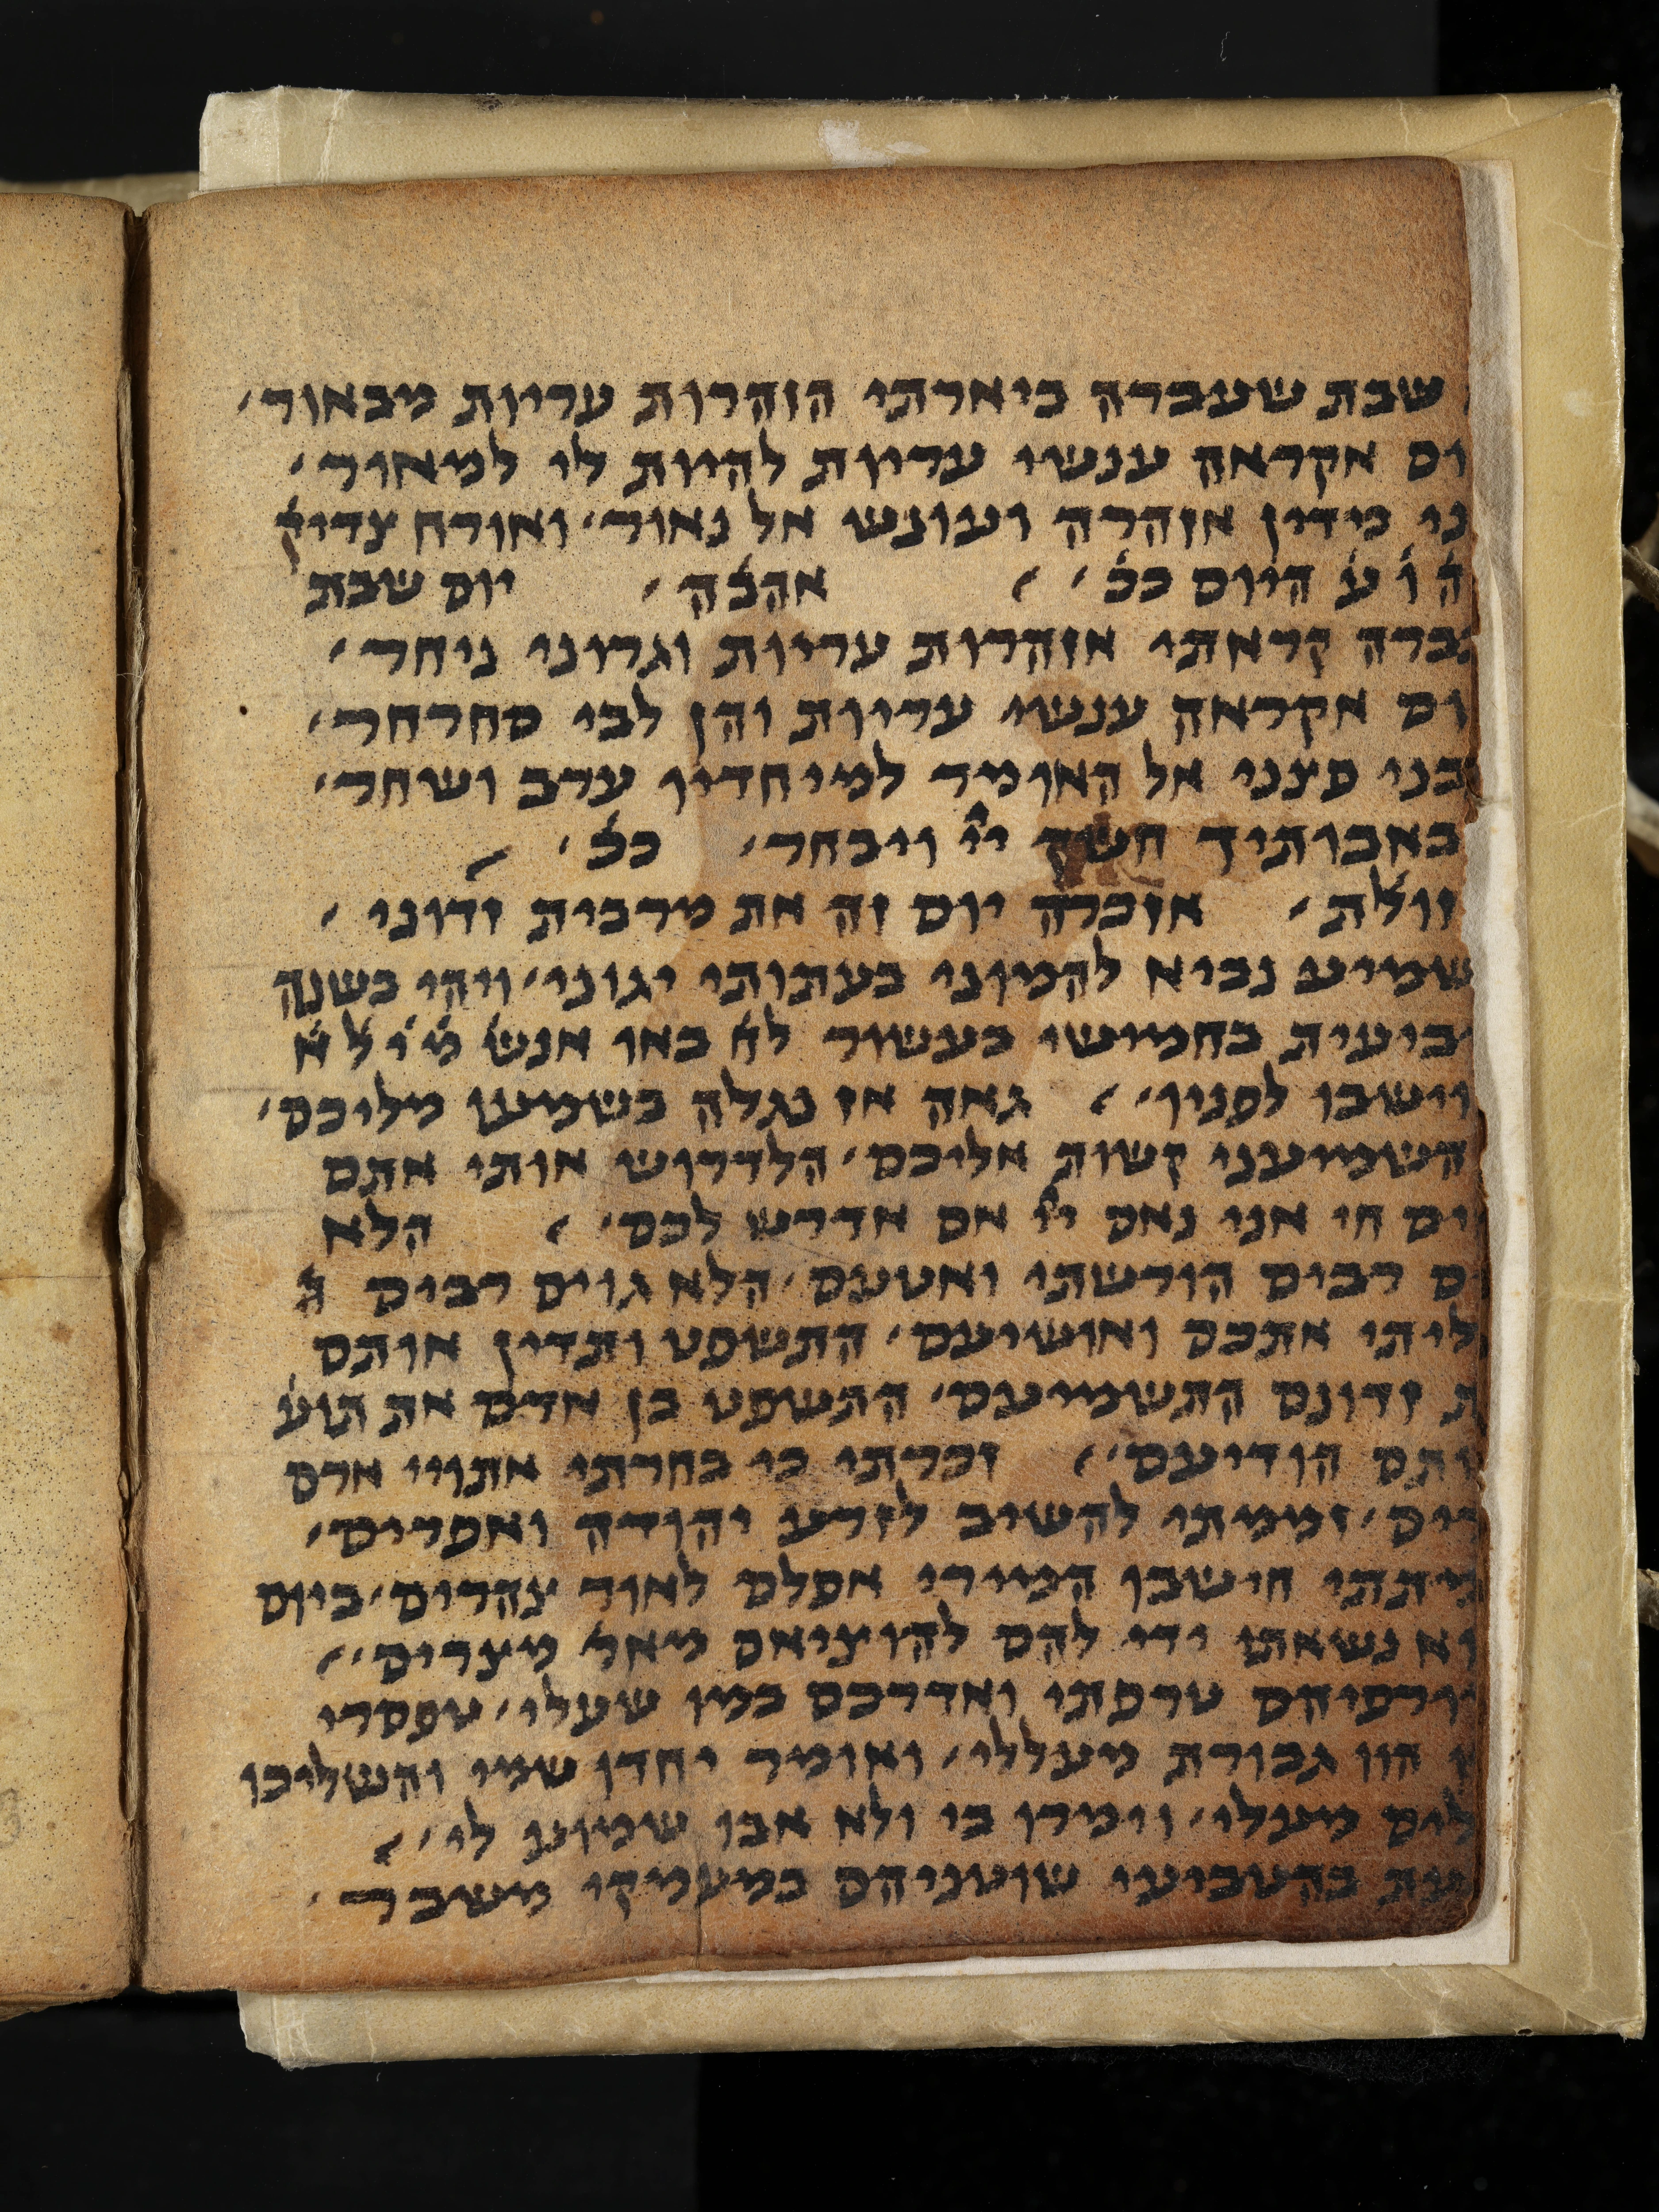 שבת שעברה ביארתי הזהרות עריות מבאור׳
ום אקראה ענשי עריות להיות לי למאור׳
ני מידין אזהרה ועונש אל נאור׳ ואורח צדיק
ה ו ע היום ככ׳ אהבה׳ יום שבת
ברה קראתי אזהרות עריות וגרוני ניחר׳
ום אקראה ענשי עריות והן לבי סחרחר׳
בני פצני אל האומר למיחדיו ערב ושחר׳
באבותיך חשק ייי ויבחר׳ ככ׳
זולת׳ אזכרה יום זה את מרבית זדוני׳
שמיע נביא להמוני בעתותי יגוני׳ ויהי בשנה
ביעית בחמישי בעשור לח באו אנש מ׳ י׳ ל׳ א׳
וישבו לפני׳ גאה אז נגלה בשמען מליכם׳
השמיעני קשות אליכם׳ הלדרוש אותי אתם
ים חי אני נאם ייי אם אדרש לכם׳ הלא
ם רבים הורשתי ואטעם׳ הלא גוים רבים ה
ליתי אתכם ואושיעם׳ התשפט ותדין אותם
ת זדונם התשמיעם׳ התשפט בן אדם את תוע
ותם הודיעם׳ זכרתי כי בחרתי אתויי ארם
ים׳ זממתי להשיב לזרע יהודה ואפרים׳
חישבן המירו אפלם לאור צהרים׳ ביום
וא נשאתי ידי להם להוציאם מאר מצרים׳
ורפיהם טרפתי ואדרכם כמו שעלי׳ טפסרי
הון גבורת מעללי׳ ואומר יחדן שמי והשליכו
לום מעלי׳ וימרו בי ולא אבו שמוע לי׳
עת בהטביעי שוטניהם במעמקי משבר׳